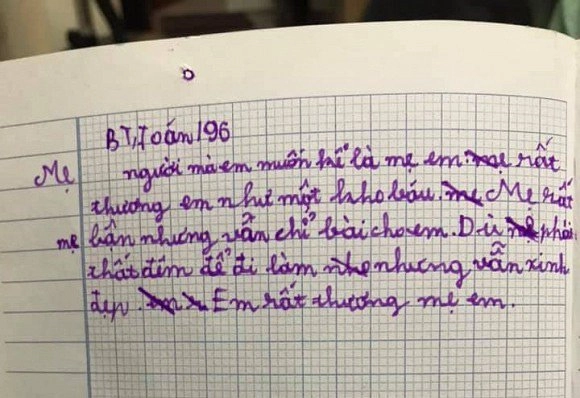 BT, Toán 196
Mẹ người mà em muốn kể là mẹ em. mẹ rất
thương em như một kho báu. mẹ Mẹ rất
mẹ bận nhưng vẫn chỉ bài cho em. Dù mẹ phải
thất đêm để đi làm nhưng vẫn xinh
đẹp. Em rất thương mẹ em.